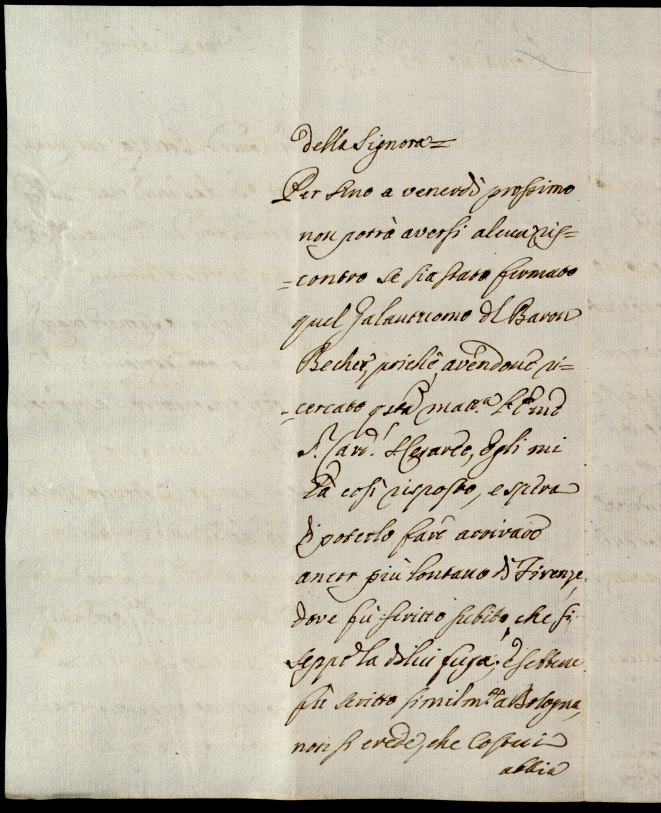 della Signora=
Per sino a venerdì prossimo
non potrà aversi alcun ris=
=contro se sia stato fermato
quel Galantuomo del Baron
Becher, poichè avendone ri=
=cercato q.sta matt.a l'Emo
S.r Card.l Legato, Egli mi
hà così risposto, e spera
di poterlo fare arrivare
ancor più lontano di Firenze,
dove fù scritto subito, che si
seppe la di lui fuga; E sebbene
fù scritto similm.te a Bologna,
non si crede, che Costui
abbia